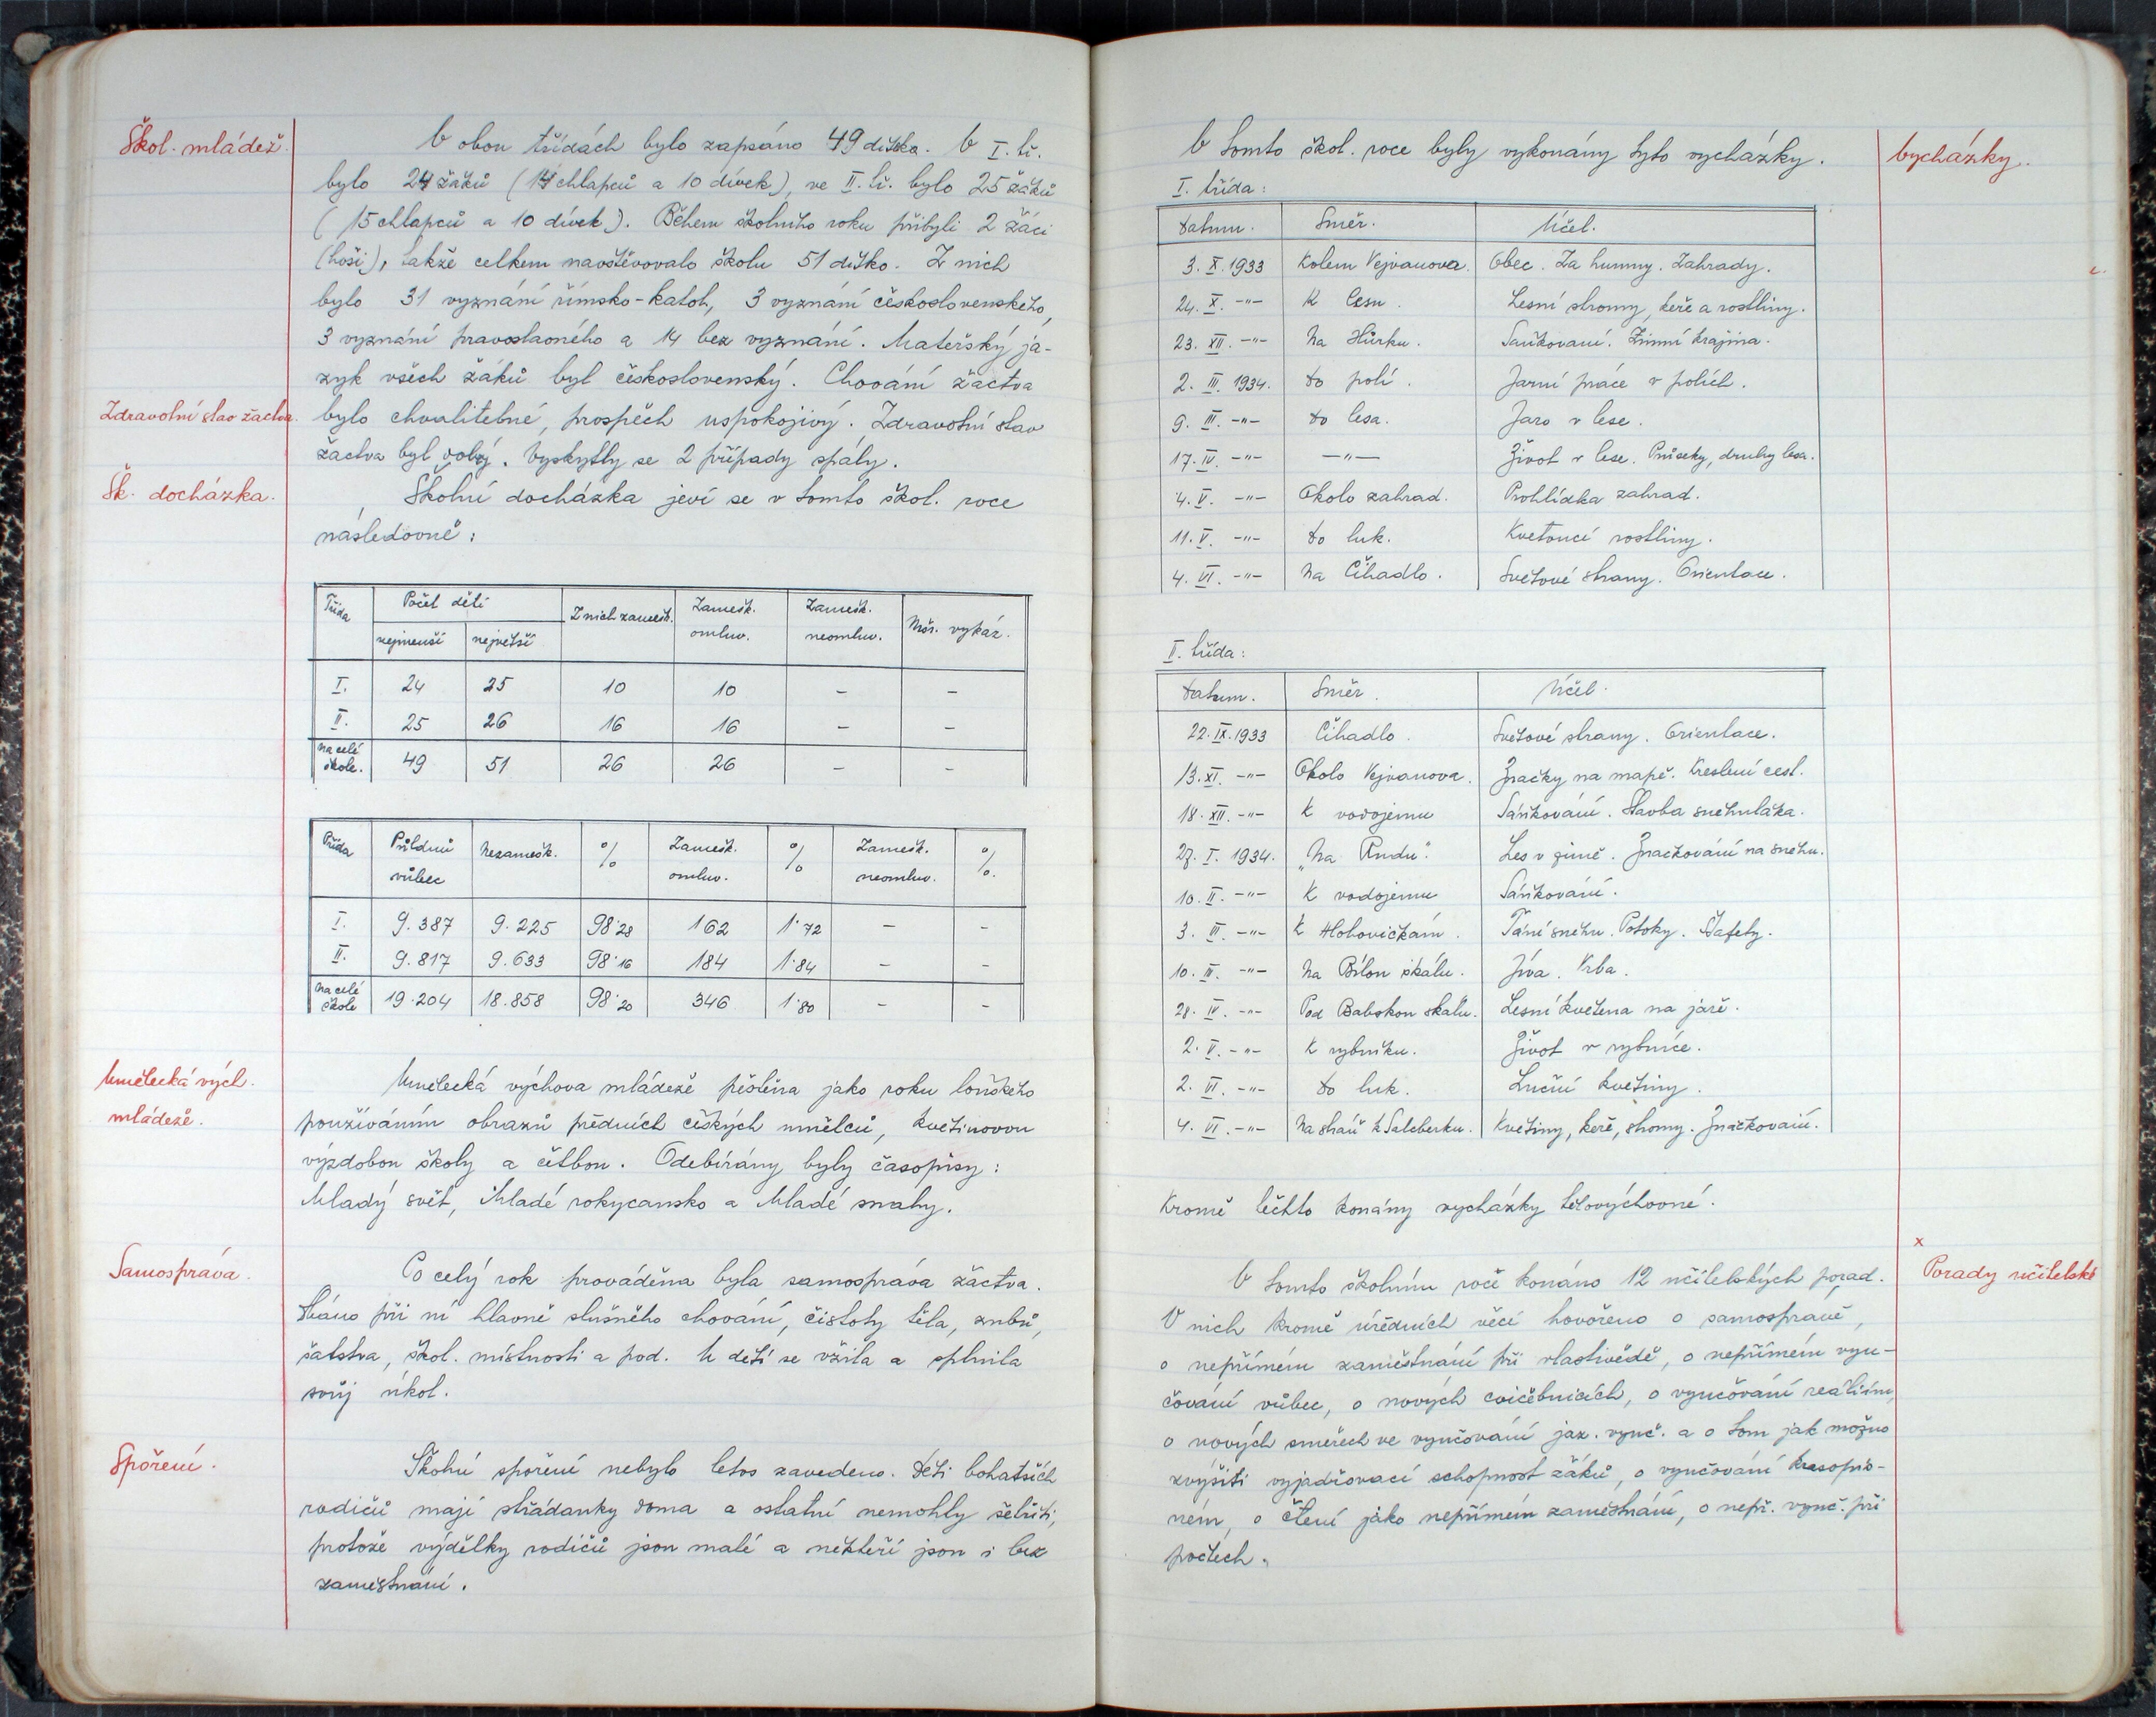 Škol. mládež.
V obou třídách bylo zapsáno 49 dítka. V I. tř.
bylo 24 žáků (14 chlapců a 10 dívek), ve II. tř. bylo 25 žáků
(15 chlapců a 10 dívek). Během školního roku přibyli 2 žáci
(hoši), takže celkem navštěvovalo školu 51 dítko. Z nich
bylo 31 vyznání římsko-katol, 3 vyznání československého,
3 vyznání pravoslavného a 14 bez vyznání. Mateřský ja-
zyk všech žáků byl československý. Chování žactva
Zdravotní stav žactva.
bylo chvalitebné, prospěch uspokojivý. Zdravotní stav
žactva byl dobrý. Vyskytly se 2 případy spály.
Šk. docházka.
Školní docházka jeví se v tomto škol. roce
následovně:
Třída Počet dětí Z nich zamešk. Zamešk. omluv. Zamešk. neomluv. Mor. vykáz.
nejmenší největší
I. 24 25 10 10 – –
II. 25 26 16 16 – –
Na celé škole. 49 51 26 26 – –
Třída Půldnů vůbec Nezamešk. % Zamešk. omluv. % Zamešk. neomluv. %.
I. 9.387 9.225 98·28 162 1·72 – –
II. 9.817 9.633 98·16 184 1·84 – –
Na celé škole 19.204 18.858 98·20 346 1·80 – –
Umělecká vých.
mládeže.
Umělecká výchova mládeže pěstěna jako roku loňského
používáním obrazů předních českých umělců, květinovou
výzdobou školy a četbou. Odebírány byly časopisy:
Mladý svět, Mladé rokycansko a Mladé snahy.
Samospráva.
Po celý rok prováděna byla samospráva žactva.
Dbáno při ní hlavně slušného chování, čistoty těla, zubů,
šatstva, škol. místnosti a pod. U dětí se vžila a splnila
svůj úkol.
Spoření.
Školní spoření nebylo letos zavedeno. Děti bohatších
rodičů mají střádanky doma a ostatní nemohly šetřiti,
protože výdělky rodičů jsou malé a někteří jsou i bez
zaměstnání.
V tomto škol. roce byly vykonány tyto vycházky.
Vycházky.
I. třída:
Datum. Směr. Účel.
3. X. 1933 Kolem Vejvanova. Obec. Za humny. Zahrady.
24. X. -"- K lesu. Lesní stromy, keře a rostliny.
23. XII. -"- Na Hůrku. Sáňkování. Zimní krajina.
2. III. 1934. Do polí. Jarní práce v polích.
9. III. -"- Do lesa. Jaro v lese.
17. IV. -"- -"- Život v lese. Průseky, druhy lesa.
4. V. -"- Okolo zahrad. Prohlídka zahrad.
11. V. -"- Do luk. Kvetoucí rostliny.
4. VI. -"- Na Čihadlo. Světové strany. Orientace.
II. třída:
Datum. Směr. Účel.
22. IX. 1933 Čihadlo. Světové strany. Orientace.
13. XI. -"- Okolo Vejvanova. Značky na mapě. Kreslení cest.
18. XII. -"- K vodojemu Sáňkování. Stavba sněhuláka.
27. I. 1934. „Na Rudu". Les v zimě. Značkování na sněhu.
10. II. -"- K vodojemu Sáňkování.
3. III. -"- K Hlohovičkám. Tání sněhu. Potoky. Štafety.
10. III. -"- Na Bílou skálu. Jíva. Vrba.
28. IV. -"- Pod Babskou skálu. Lesní květena na jaře.
2. V. -"- K rybníku. Život v rybníce.
2. VI. -"- Do luk. Luční květiny.
4. VI. -"- Na stráň k Salcberku. Květiny, keře, stromy. Značkování.
Kromě těchto konány vycházky tělovýchovné.
x
Porady učitelské
V tomto školním roce konáno 12 učitelských porad.
V nich kromě úředních věcí hovořeno o samosprávě,
o nepřímém zaměstnání při vlastivědě, o nepřímém vyu-
čování vůbec, o nových cvičebnicích, o vyučování reáliím,
o nových směrech ve vyučování jaz. vyuč. a o tom jak možno
zvýšiti vyjadřovací schopnost žáků, o vyučování krasopis-
ném, o čtení jako nepřímém zaměstnání, o nepř. vyuč. při
počtech.